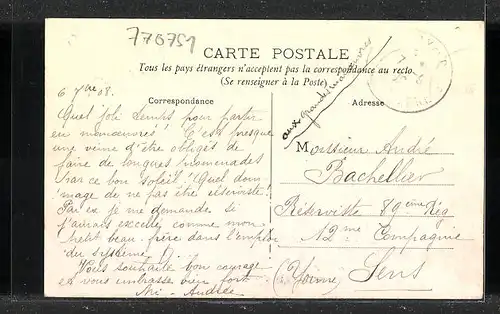 770751
CARTE POSTALE
Tous les pays étrangers n'acceptent pas la correspondance au recto.
(Se renseigner à la Poste)
Correspondance
6 7bre 08.
Quel joli temps pour partir
en manœuvres! C'est presque
une veine d'être obligés de
faire de longues promenades
par ce bon soleil! Quel dom
mage de ne pas être réserviste!
Par ex je me demande si
j'aurais exécuté comme mon
petit beau-frère dans l'emploi
du système D.
Vous souhaite bon courage
et vous embrasse bien fort
Andrée
Adresse
aux grandes manœuvres
Monsieur André
Bachellier
Réserviste 89ème Rég
12me Compagnie
Sens
(Yonne)